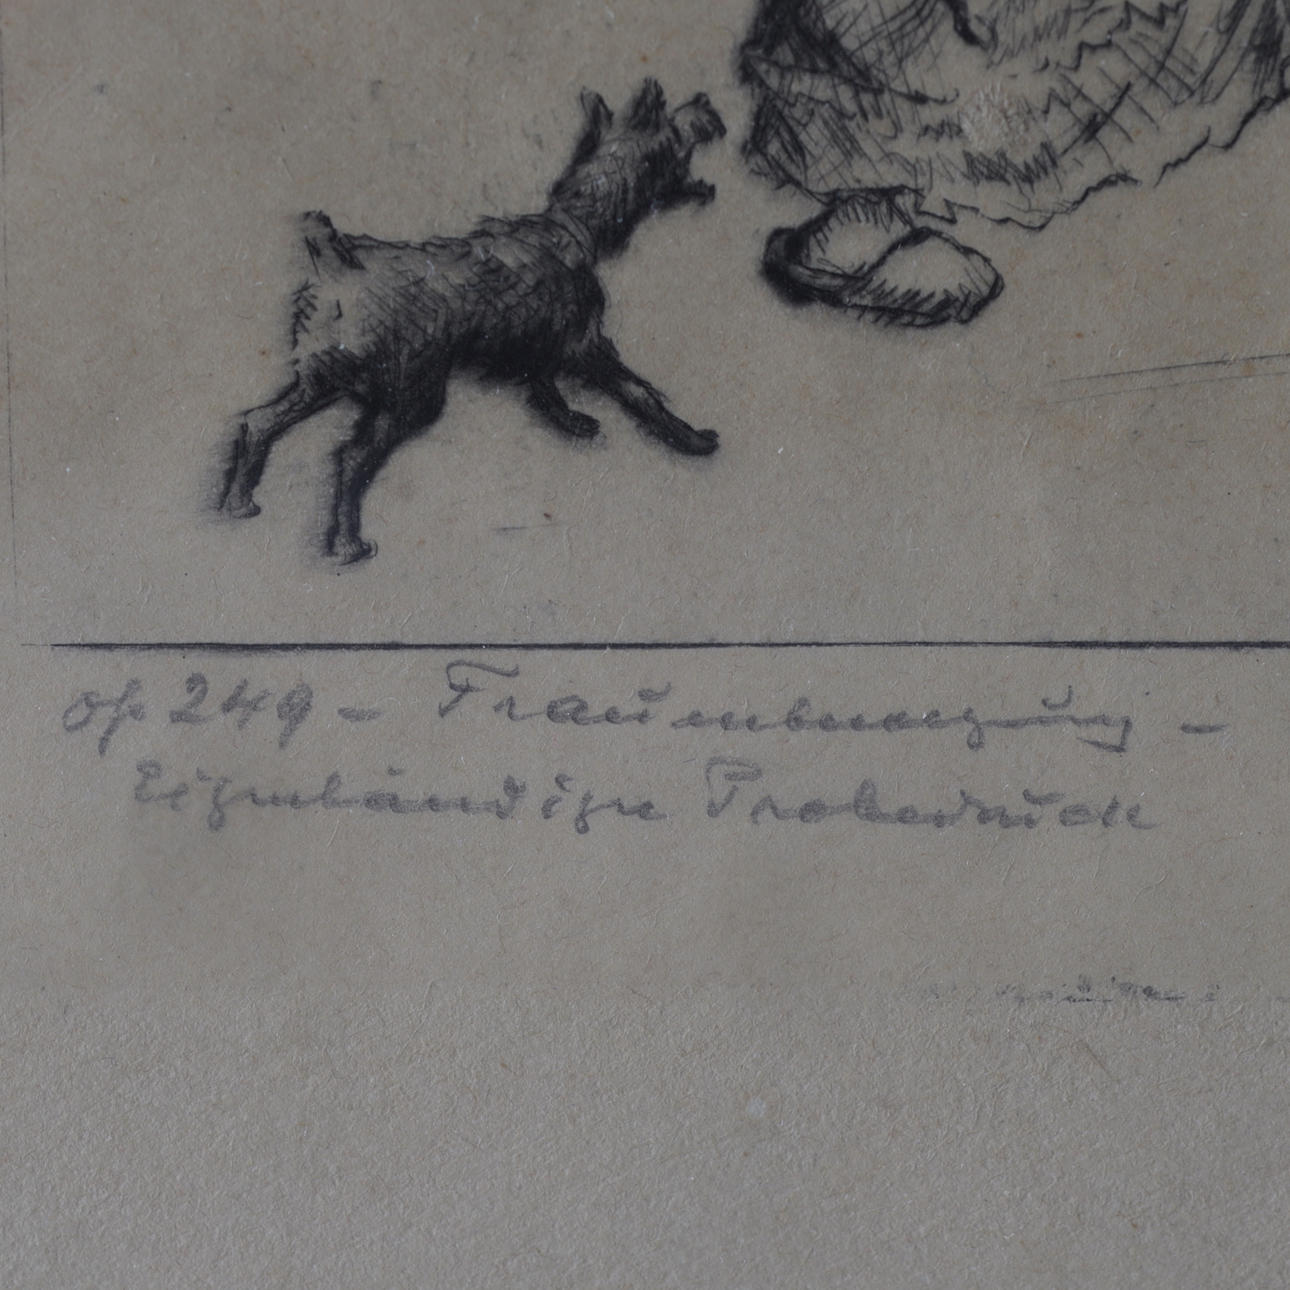 op 249 - Traumbewegung -
Eigenhändige Probedruck